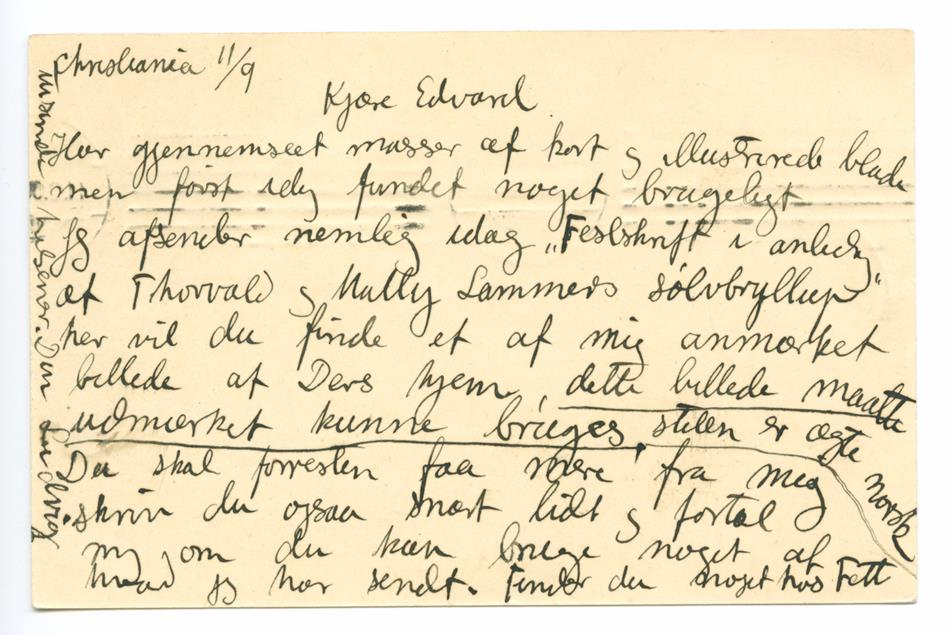 Christiania 11/9
Kjære Edvard
Har gjennemseet masser af kort og illustrerede blade
men først idag fundet noget brugeligt
Jeg afsender nemlig idag „Festskrift i anledng
af Thorvald og Mally Lammers sølvbryllup"
her vil du finde et af mig anmærket
billede af Ders hjem, dette billede maatte
udmærket kunne bruges, stilen er ægte norsk
Du skal forresten faa mere fra meg
skriv du ogsaa snart lidt og fortæl
mig om du kan bruge noget af
hvad jeg har sendt. Finder du noget hos Fett
tusinde hilsener. Din Ludvig